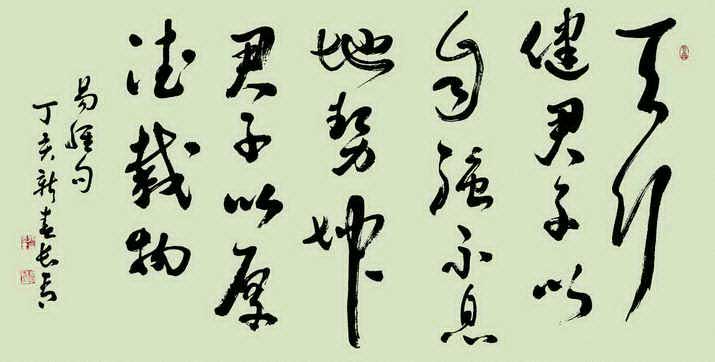 天行
健君子以
自强不息
地勢坤
君子以厚
德載物
易經句
丁亥新春